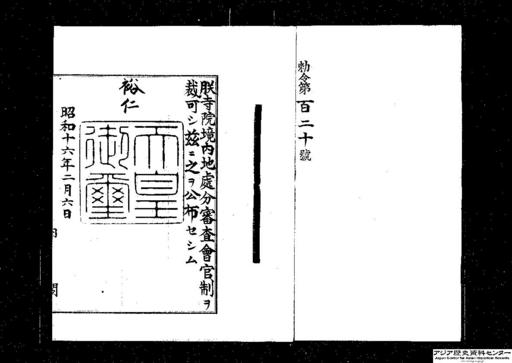 勅令第百二十號
朕寺院境内地處分審査會官制ヲ
裁可シ茲ニ之ヲ公布セシム
裕仁
天皇御璽
昭和十六年二月六日
内閣
アジア歴史資料センター
Japan Center for Asian Historical Records